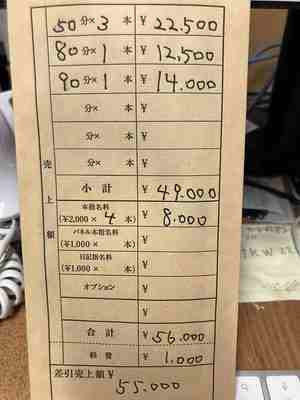 50分×3本 ¥22,500
80分×1本 ¥12,500
90分×1本 ¥14.000
分× 本 ¥
分× 本 ¥
分× 本 ¥
売上額
小計 ¥49.000
本指名料
(¥2,000× 4本) ¥8.000
パネル本指名料
(¥1,000× 本) ¥
日記指名料
(¥1,000× 本) ¥
オプション ¥
¥
合計 ¥56.000
経費 ¥1.000
差引売上額¥
55.000